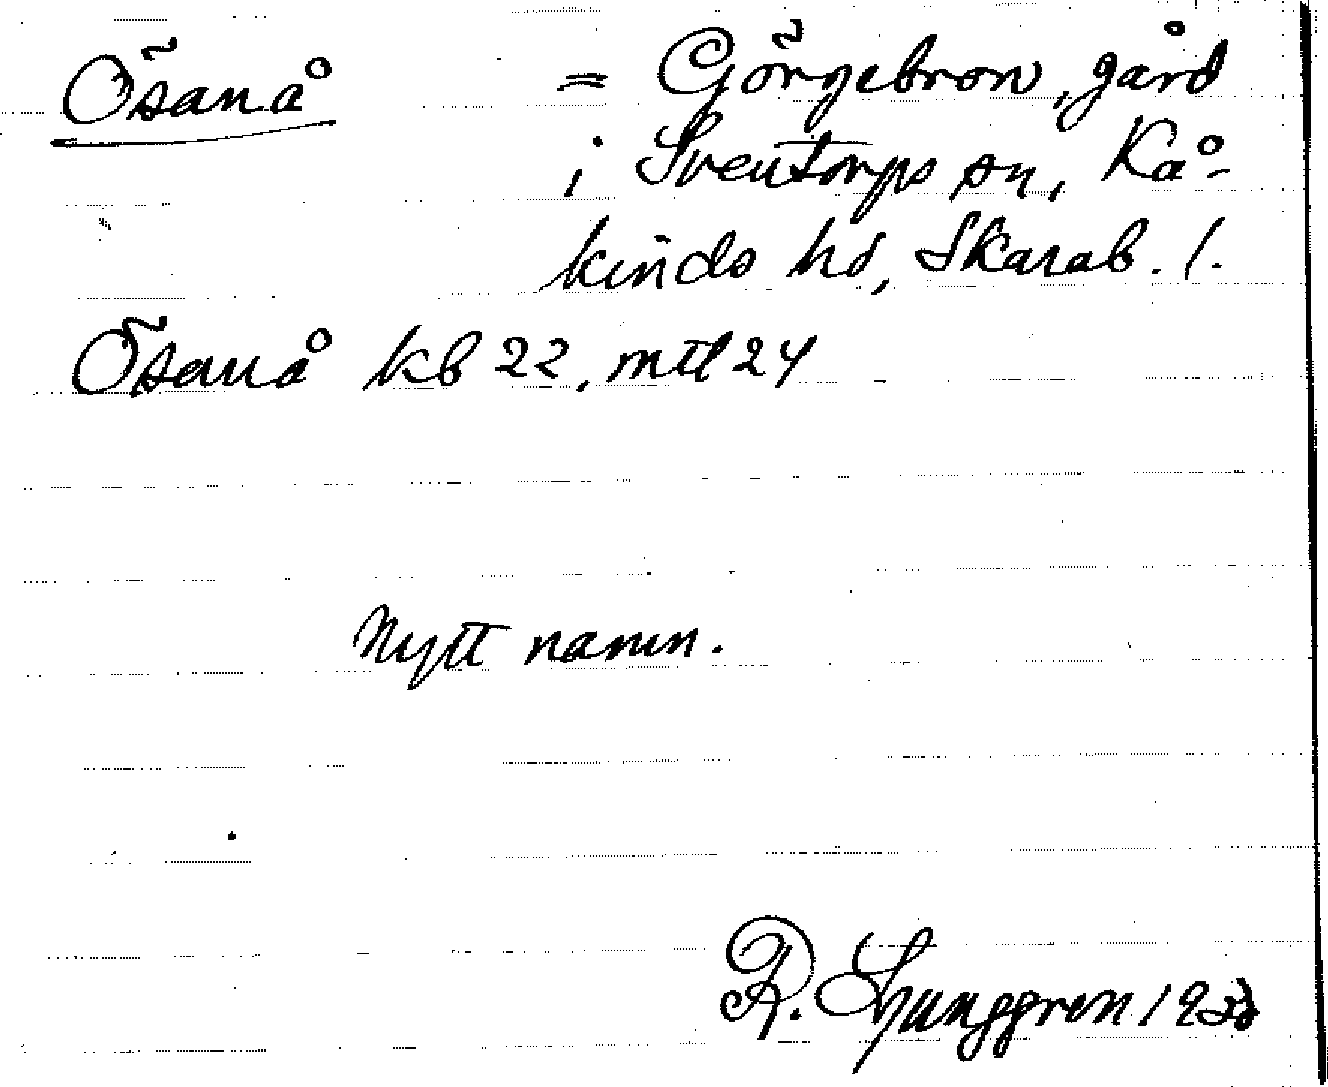 Ösanå = Görgebron, gård
i Sventorps sn, Kå-
kinds hd, Skarab. l.
Ösanå kb 22, mtl 24
Nytt namn.
R. Ljunggren